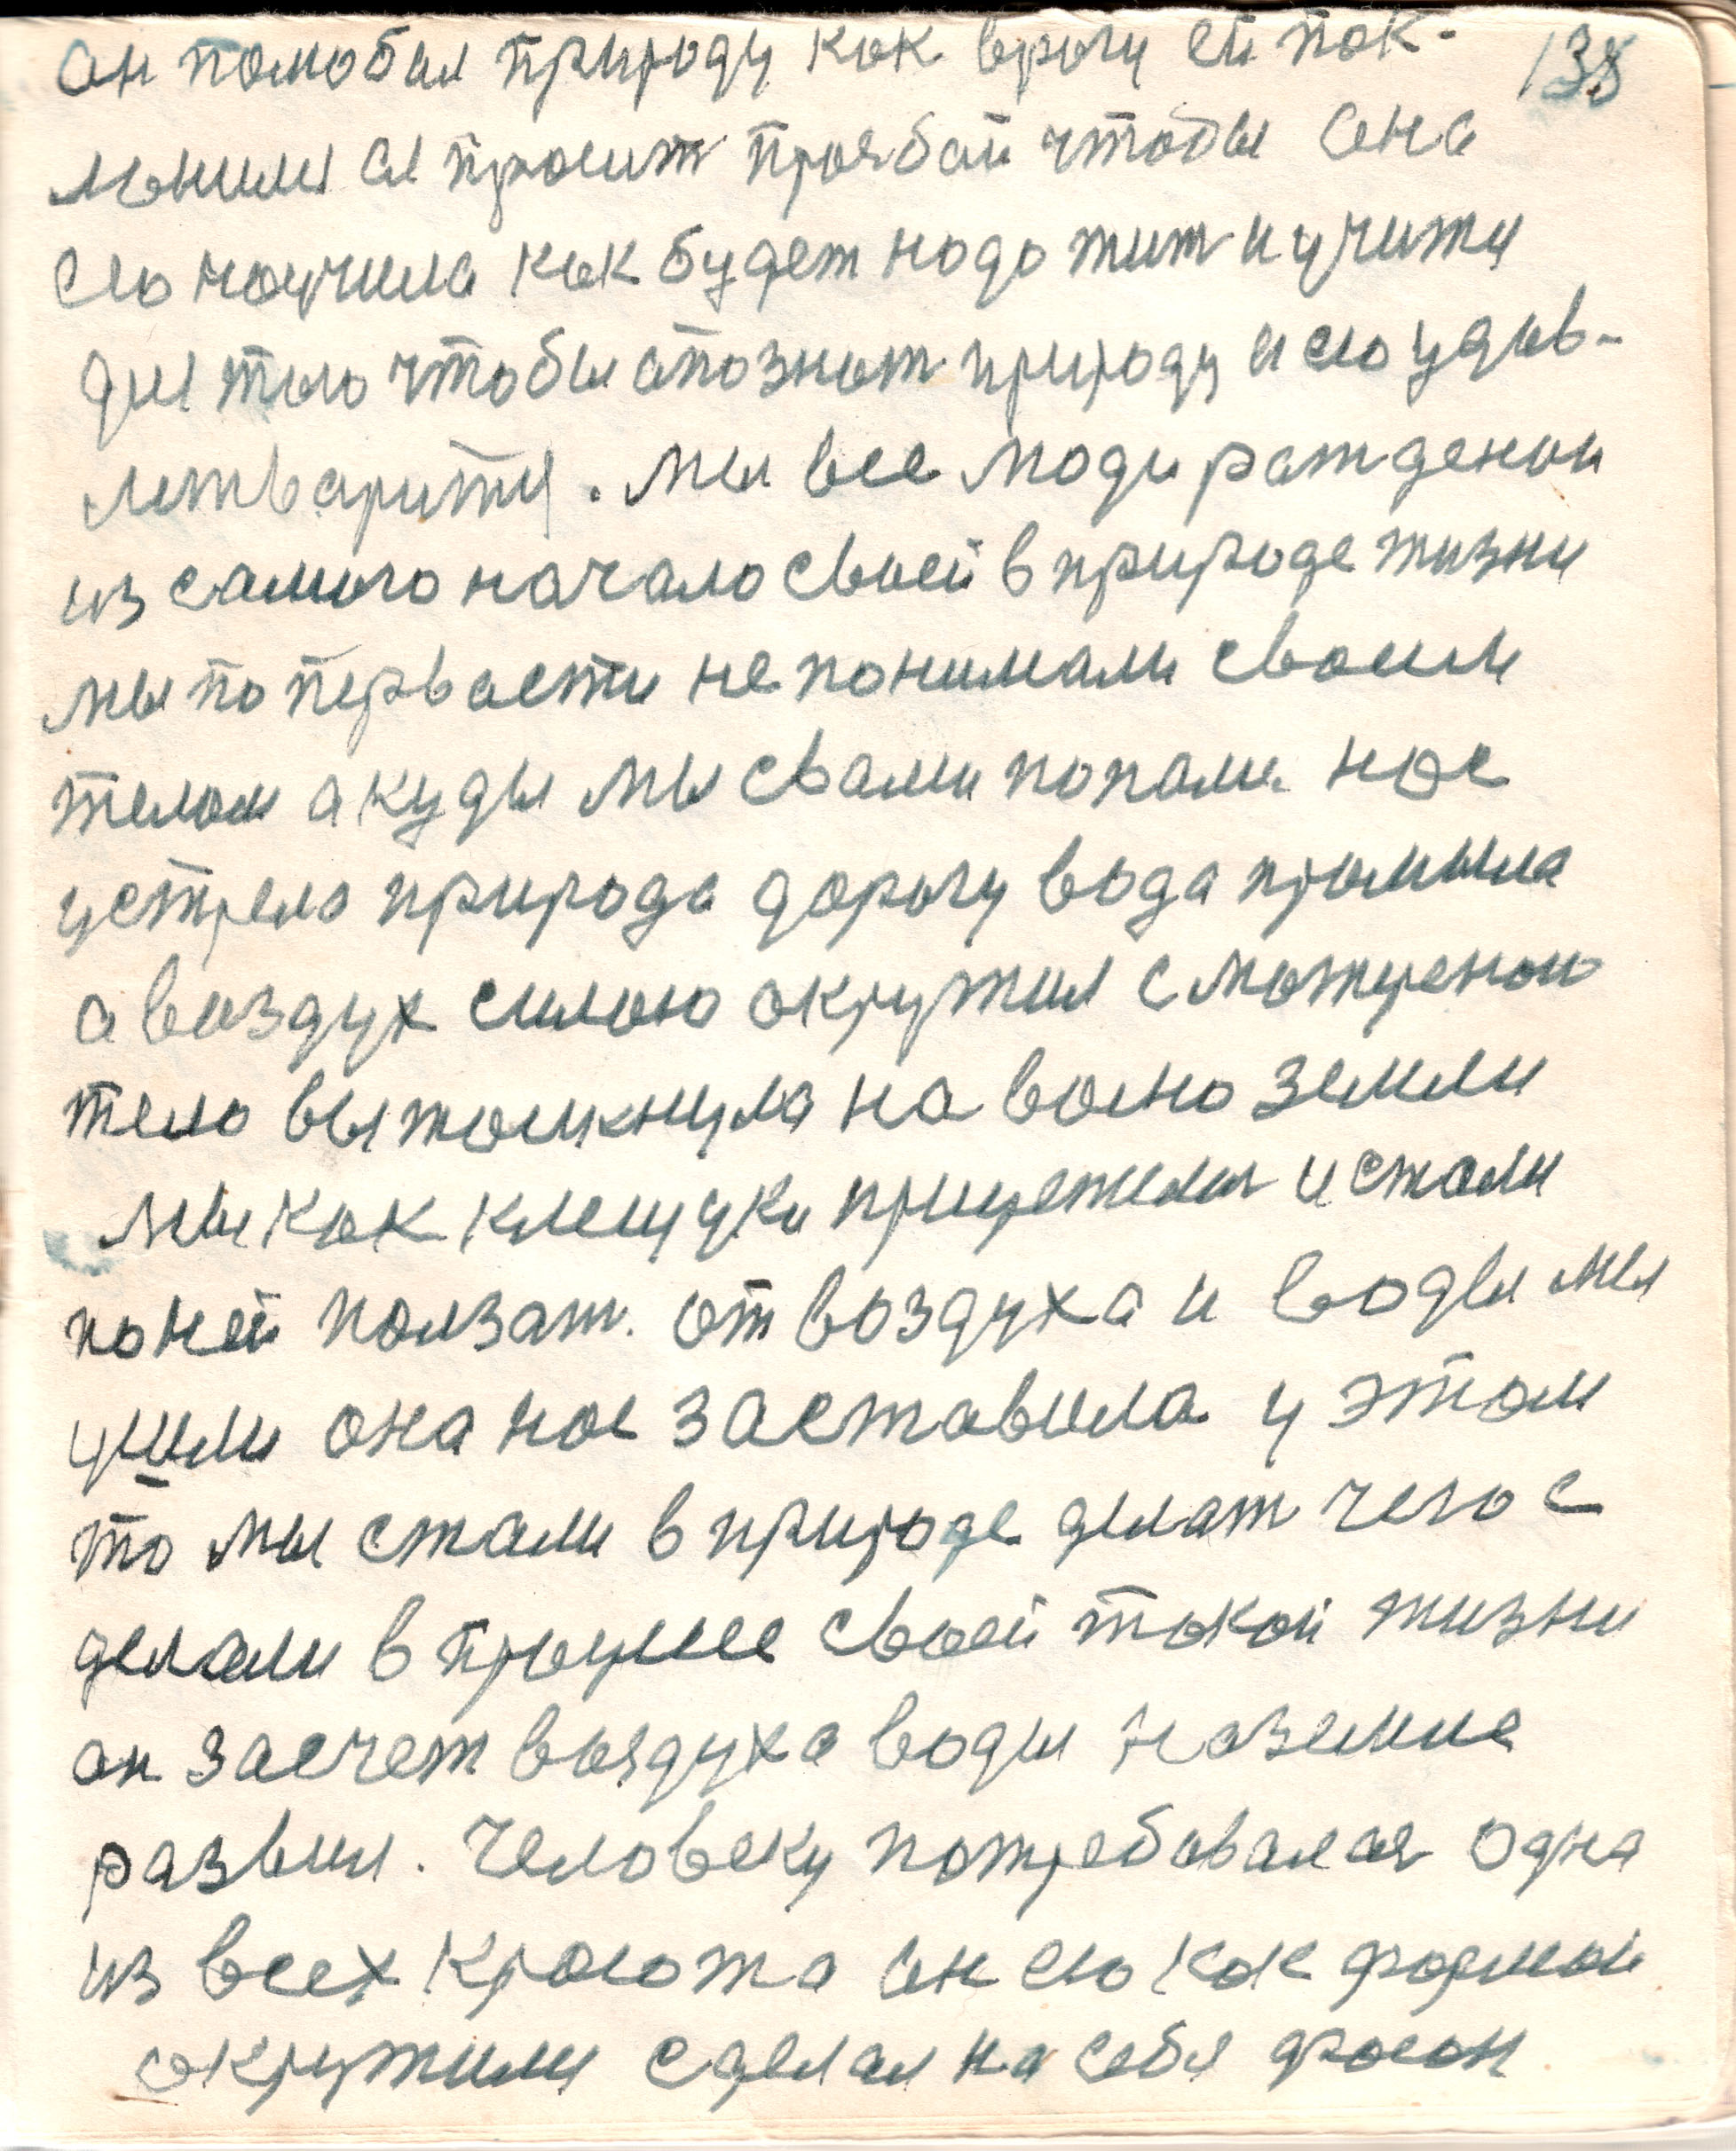 он полюбил природу как врагу ей пок- 138
лонился просит прозбой чтобы она
его научила как будет надо жит и учитя
для того чтобы опознат природу и ею удав-
летваритя. мы все люди ражденаи
из самого начало своей в природе жизни
мы по первасти не понимали своим
телом а куды мы свами попали нас
устрело природа дорогу вода промыла
а воздух силаю окружил сматиренаю
тело вытолкнула на волю земли
мы как клещуки прицепились и стали
по ней ползат. от воздуха и воды мы
ушли она нас заставила у этом
то мы стали в природе делат чего с
делали в процессе своей такой жизни
он засчет воздуха воды наземле
развил. Человеку потребавалася одна
из всех красота он ею как формай
окружилы сделал на себя фасон